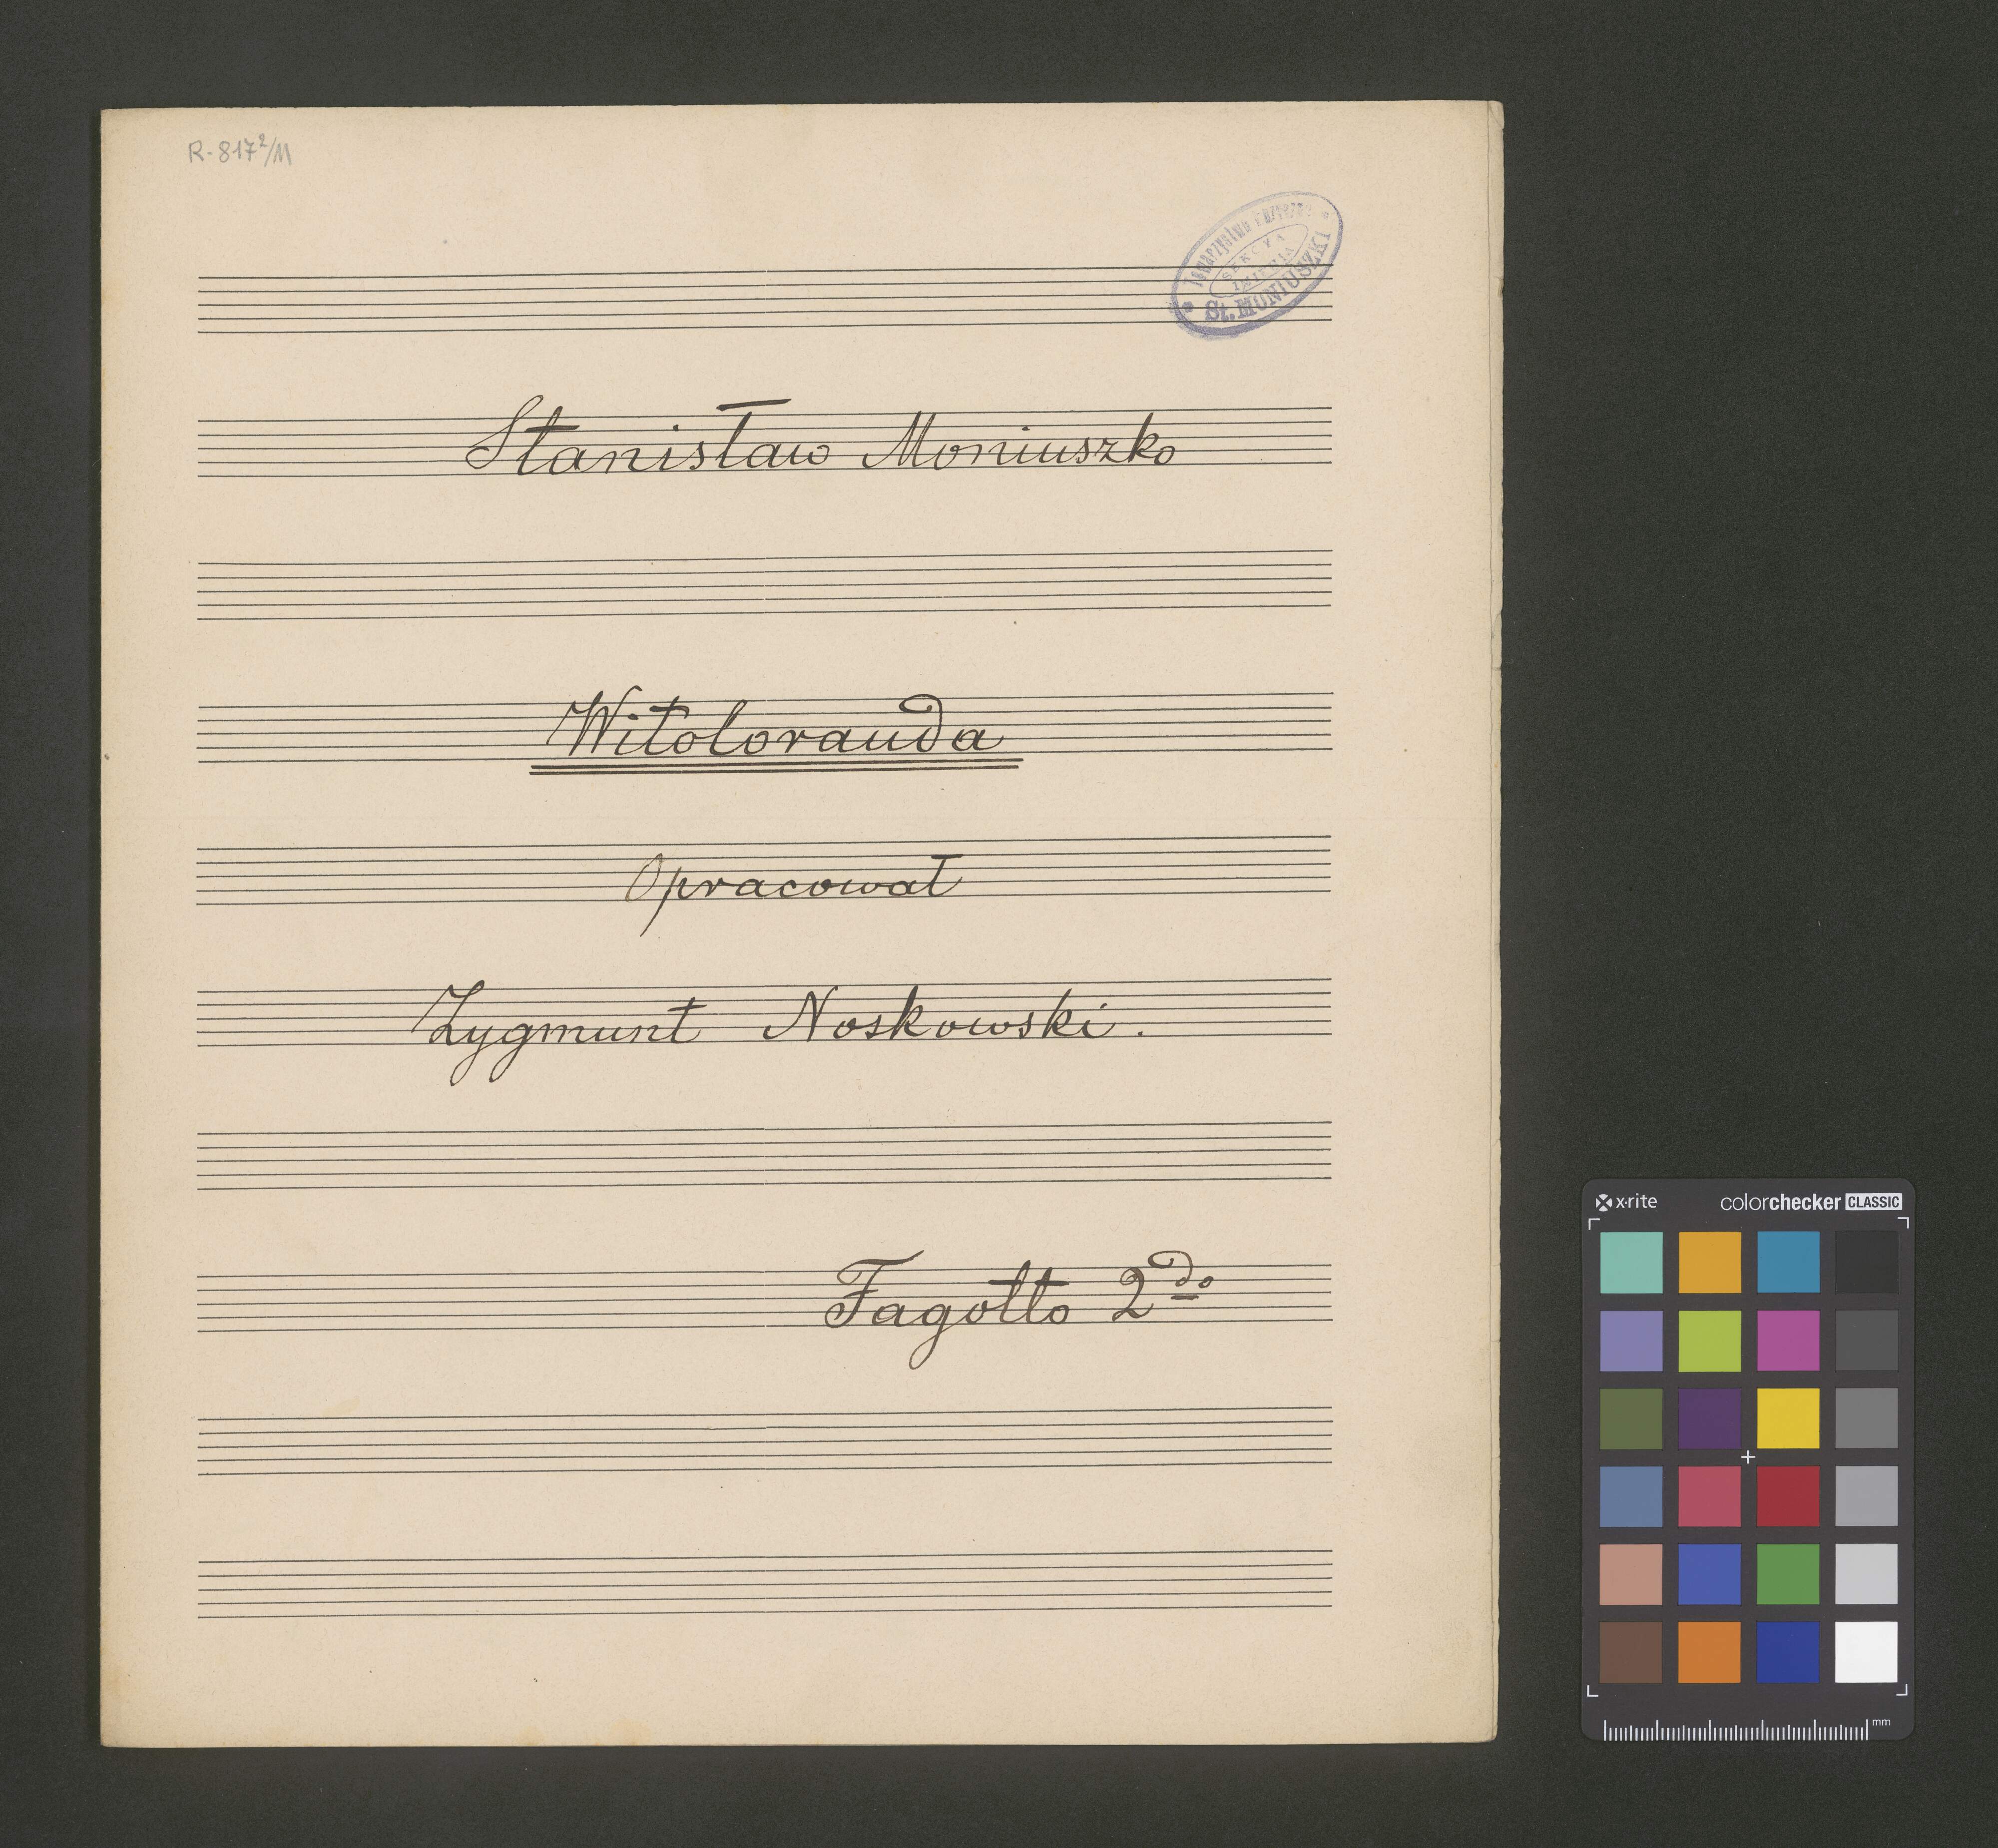 R-817²/11
Towarzystwo
SEKCYA
IMIENIA
St. MONIUSZKI
Stanisław Moniuszko
Witolorauda
Opracował
Zygmunt Noskowski.
Fagotto 2do
x-rite colorchecker CLASSIC
mm